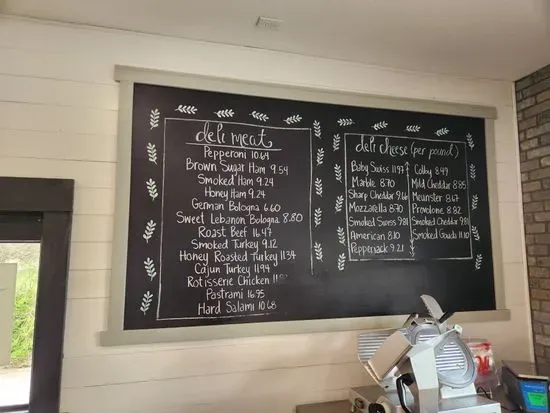 deli meat
Pepperoni 10.64
Brown Sugar Ham 9.54
Smoked Ham 9.24
Honey Ham 9.24
German Bologna 6.60
Sweet Lebanon Bologna 8.80
Roast Beef 16.47
Smoked Turkey 9.12
Honey Roasted Turkey 11.34
Cajun Turkey 11.94
Rotisserie Chicken
Pastrami 16.95
Hard Salami 10.68
deli cheese (per pound)
Baby Swiss 11.97
Marble 8.70
Sharp Cheddar 9.66
Mozzarella 8.70
Smoked Swiss 9.81
American 8.10
Pepperjack 9.21
Colby 8.49
Mild Cheddar 8.85
Muenster 8.67
Provolone 8.82
Smoked Cheddar 9.81
Smoked Gouda 11.10